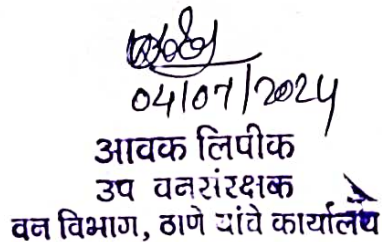 04/07/2024
आवक लिपीक
उप वनसंरक्षक
वन विभाग, ठाणे यांचे कार्यालय